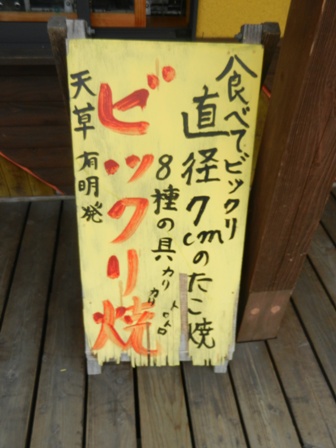 食べてビックリ
直径7cmのたこ焼
8種の具
カリカリ
トロトロ
ビックリ焼
天草 有明発